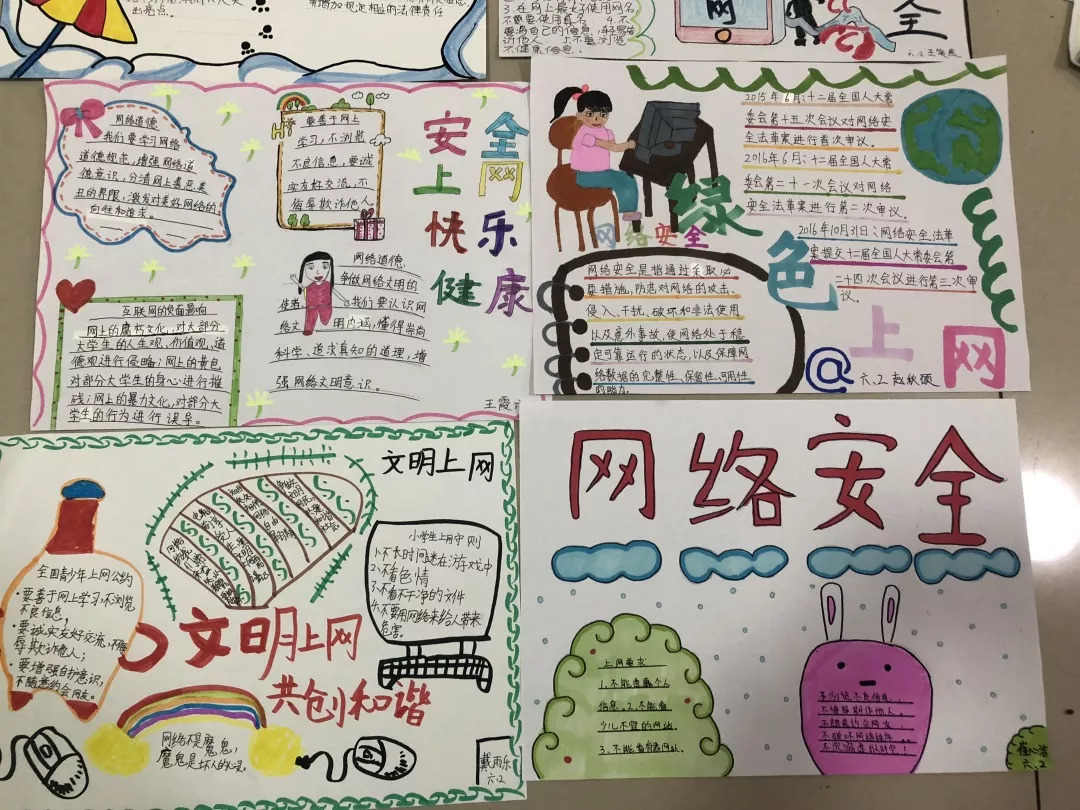 出亮点。
增加规定相应的法律责任
3.在网上最好使用网名
不需要使用真名 4.不
网
全
不健康信息。
网络道德
我们要学习网络
道德规范,增强网络道
德意识,分清网上善恶美
丑的界限,激发对美好网络的
向往和追求。
Hi
要善于网上
学习,不浏览
不良信息,要诚
实友好交流,不
侮辱欺诈他人
安全
上网
快乐
健康
互联网的负面影响
网上的腐朽文化,对大部分
大学生的人生观、价值观、道
德观进行侵略;网上的黄色
对部分大学生的身心进行摧
残;网上的暴力文化,对部分大
学生的行为进行误导。
网络道德
争做网络文明的
使者 我们要认识网
络文 明内涵,懂得崇尚
科学、追求真知的道理,增
强网络文明意识。
王霞
2015年6月:十二届全国人大常
委会第十五次会议对网络安
全法草案进行首次审议。
2016年6月:十二届全国人大常
委会第二十一次会议对网络
安全法草案进行第二次审议。
2016年10月31日:网络安全法草
案提交十二届全国人大常委会第
二十四次会议进行第三次审
议。
绿
色
上
网
网络安全
网络安全是指通过采取必
要措施,防范对网络的攻击、
侵入、干扰、破坏和非法使用
以及意外事故,使网络处于稳
定可靠运行的状态,以及保障网
络数据的完整性、保密性、可用性
的能力。
@
六.2
文明上网
全国青少年上网公约
·要善于网上学习不浏览
不良信息,
·要诚实友好交流,不侮
辱欺诈他人;
·要增强自护意识,
不随意约会网友。
小学生上网守则
1.不长时间迷在游戏中
2.不看色情
3.不看不干净的文件
4.不要用网络来给人带来
危害。
文明上网
共创和谐
网络不是魔鬼,
魔鬼是坏人的心灵。
戴雨乐
六.2
网络安全
上网要求
1.不能透露个人
信息.2.不能看
少儿不宜的网站.
不浏览不良信息.
不侮辱欺诈他人.
不随意约会网友.
六.2